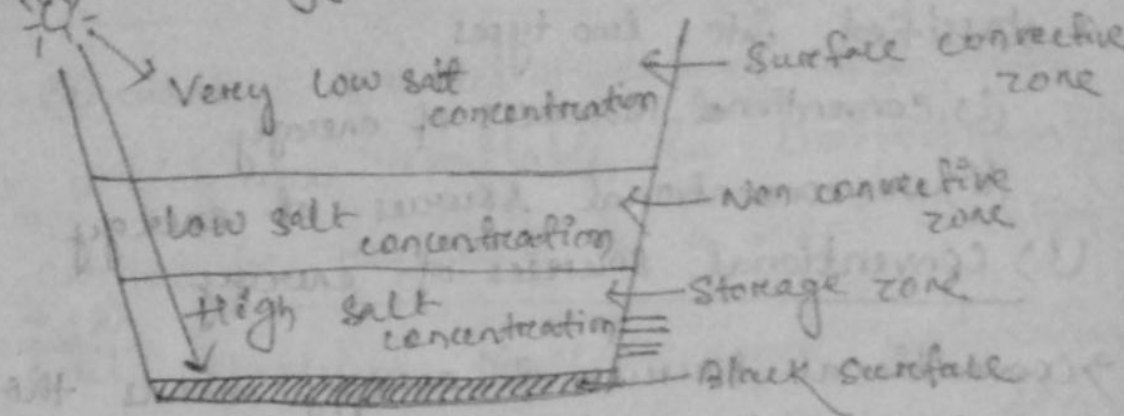 Very low salt
concentration
Surface convective
zone
Low salt
concentration
Non convective
zone
High salt
concentration
Storage zone
Black surface